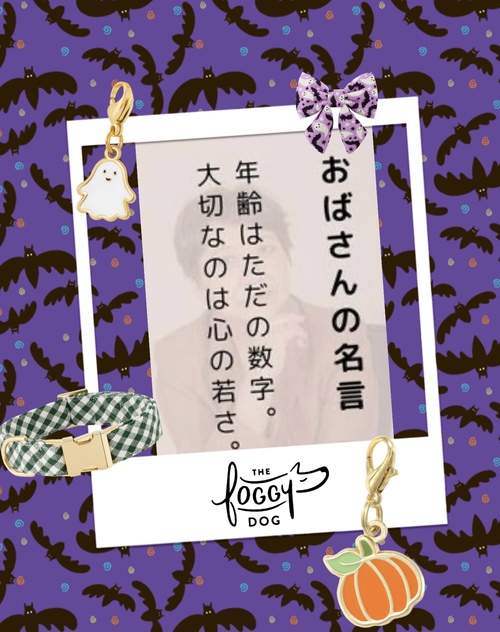 おばさんの名言
年齢はただの数字。
大切なのは心の若さ。
THE
foggy
DOG